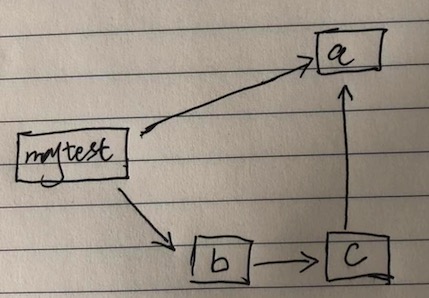 a
mytest
b
c